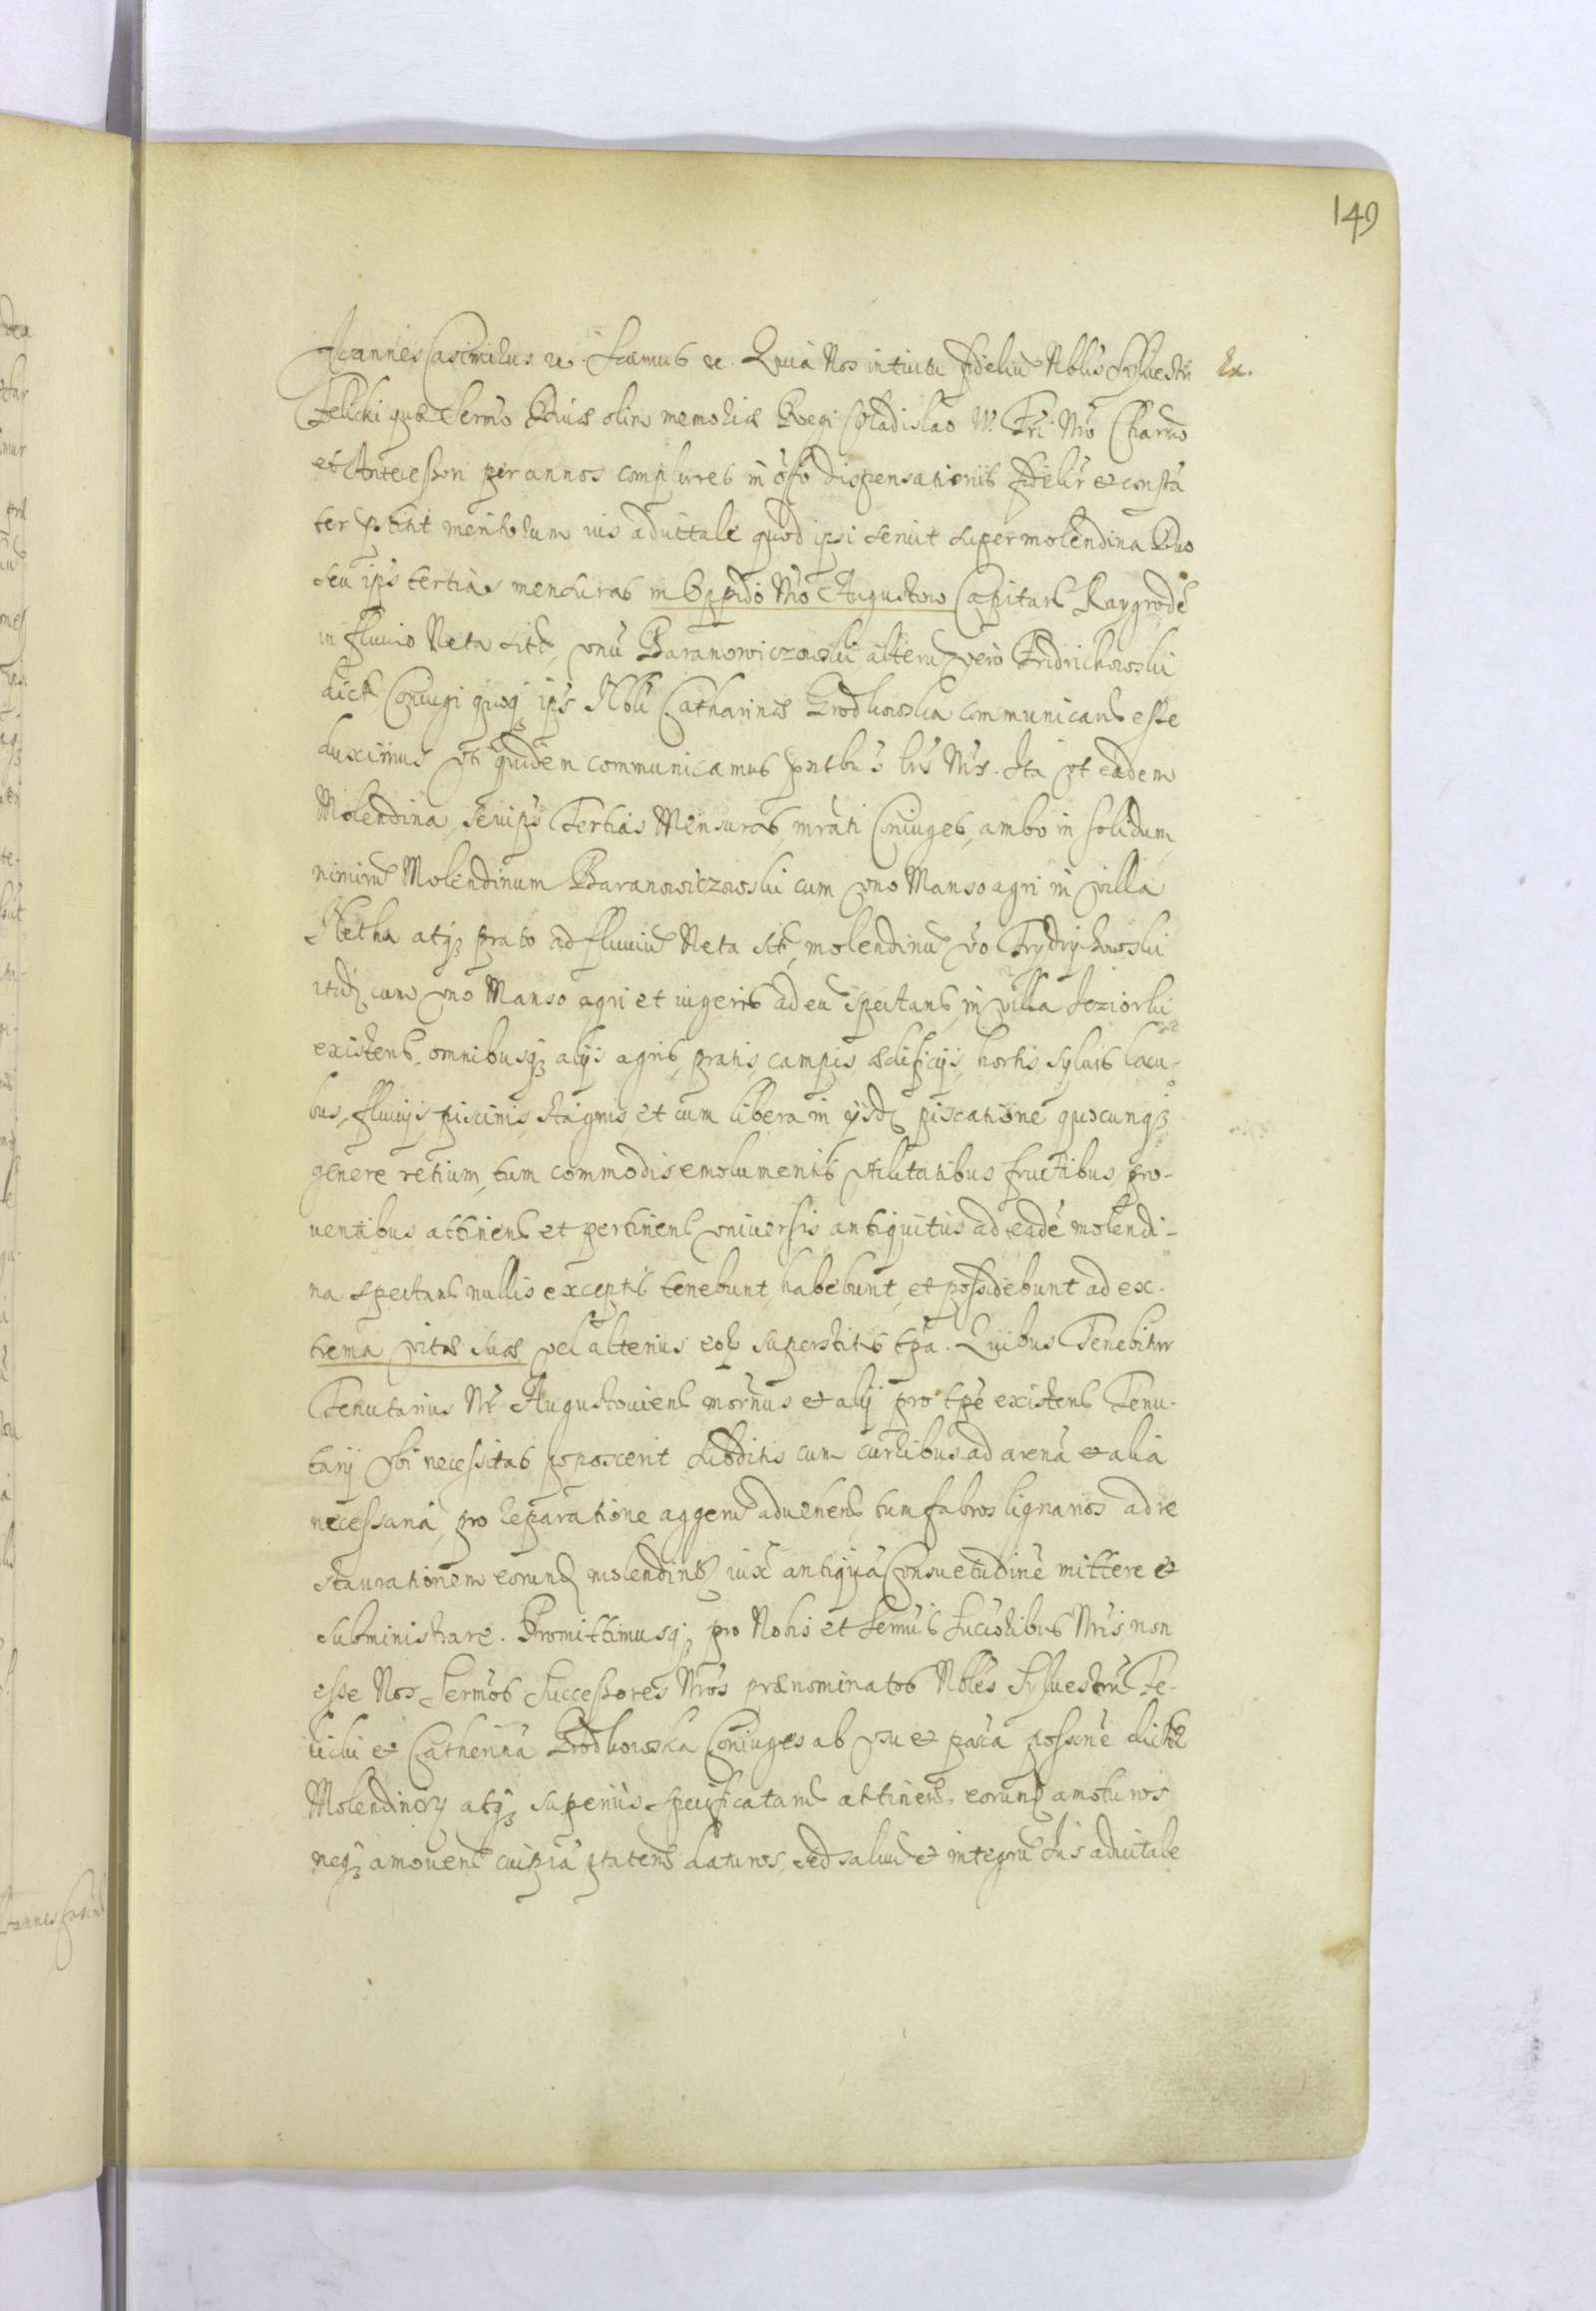 149
Joannes Casimirus etc. Scimus etc. Quia Nos intuitu fideliu Nblis Syluestri Ex.
Felicki quæ Sermo Diuæ olim memoriæ Regi Vladislao IV. Fri Nro Charmo
et Antecessori per annos complures in offo dispensationis fidelir et constã
ter ptitit meritorum ius aduitale quod ipsi seruit super molendina Duo
seu ips tertias mensuras in Oppido Nro Augustow Capitan Raygrodẽ
in fluuio Neta sit, vnũ Baranowiczowski alterũ vero Fridrichowski
dict, Coniugi quoq ips Nbli Catharinæ Grodkowska communican esse
duximus vti quidem communicamus pntbus lris Nris. Ita vt eadem
Molendina, seu ips Tertias Mensuras, mrati Coniuges, ambo in solidum,
nimirũ Molendinum Baranowiczowski cum vno Manso agri in villa
Netha atq prato ad fluuiũ Neta sit, molendinũ vo Frydrychowski
itid cum vno Manso agri et iugeris ad eũ spectan, in villa Jeziorki
existen, omnibusq alijs agris, pratis, campis, ædificijs, hortis syluis lacu-
bus, fluuijs, piscinis, stagnis et cum libera in ijsd piscatione quocunq
genere retium, tum commodis emolumentis vtilitatibus fructibus, pro-
uentibus attinen et pertinen vniuersis antiquitus ad eadẽ molendi-
na spectan nullis exceptis tenebunt, habebunt, et possidebunt ad ex-
trema vitæ suæ vel alterius eor superstitis tpa. Quibus Tenebitur
Tenutarius Nr Augustouien mornus et alij pro tpe existen Tenu-
tarij vbi necessitas poposcerit subditis cum curribus ad arenã et alia
necessaria, pro reparatione aggerũ aduehen, tum fabros lignarios ad re
staurationem eorund molendinor iux antiquã Consuetudinẽ mittere et
subministrare. Promittimusq pro Nobis et Sermis Succribus Nris, non
esse Nos Sermos Successores Nros prænominatos Nbles Syluestrũ Fe-
licki et Catherinã Grodkowska Coniuges ab vsu et paca possone dict
Molendinor atq superius specificatar attinen. eorund amoturos
neq amouen cuipiã ptatem daturos, sed saluũ et integrũ Ius aduitale